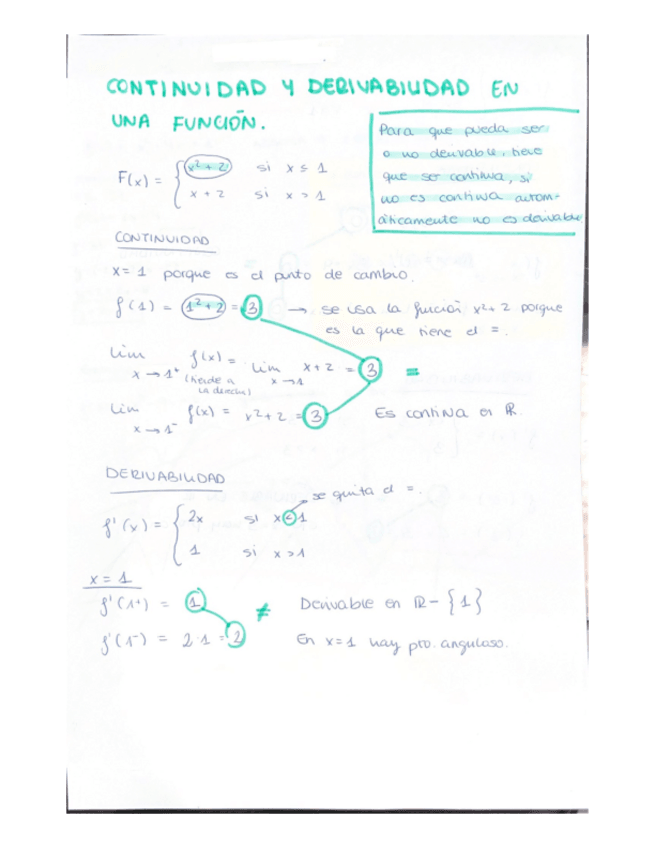 CONTINUIDAD Y DERIVABILIDAD EN
UNA FUNCIÓN.
Para que pueda ser
o no derivable, tiene
que ser continua, si
no es continua autom-
áticamente no es derivable
F(x) = { x² + 2 si x ≤ 1
x + 2 si x > 1
CONTINUIDAD
x = 1 porque es el punto de cambio.
f(1) = 1² + 2 = 3 → se usa la función x² + 2 porque
es la que tiene el =.
lim x → 1⁺ f(x) = lim x → 1 x + 2 = 3 =
(tiende a
la derecha)
lim x → 1⁻ f(x) = x² + 2 = 3 Es continua en ℝ.
DERIVABILIDAD
se quita el =.
f'(x) = { 2x si x < 1
1 si x > 1
x = 1
f'(1⁺) = 1 ≠ Derivable en ℝ - {1}
f'(1⁻) = 2·1 = 2 En x = 1 hay pto. anguloso.